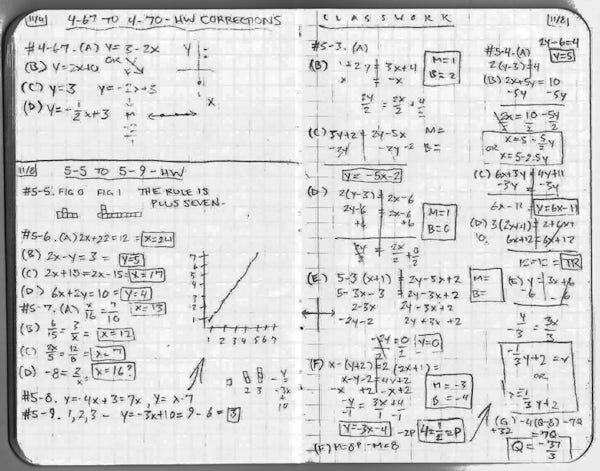 11/4 4-67 TO 4-70 - HW CORRECTIONS
#4-67. (A) Y = 3-2x
OR
(B) Y=2x+0
(C) Y=3 Y=-2x+3
(D) Y=-1/2x+3
Y
X
11/8 5-5 TO 5-9 - HW
#5-5. FIG 0 FIG 1 THE RULE IS
PLUS SEVEN.
#5-6. (A) 2x+22=12 =
(B) 2x-Y=3 = Y=5
(C) 2x+15=2x-15= X=17
(D) 6x+2y=10= Y=4
#5-7. (A) x/16 = 7/10
(B) 6/15 = 3/x = X=12
(C) 2x/5 = 12/8 = X=7
(D) -8=3/x = X=16?
#5-8. Y=-4x+3=7x, Y=x-7
#5-9. 1,2,3 - Y=-3x+10=9-6= 3
7
6
5
4
3
2
1
1 2 3 4 5 6 7
2 3
CLASSWORK 11/8
#5-3. (A)
(B) 3x+4 M=1
-x B=2
2y/2 = 2x/2 + 4/2
(C) 3y+2 = 2y-5x M=
-2y -2y-2 B=
Y=-5x-2
(D) 2(y-3) = 2x-6
2y-6 = 2x-6
+6 +6
M=1
B=0
2y/2 = 2x/2 + 0/2
(E) 5-3(x+1) = 2y-5x+2 M=
5-3x-3 = 2y-3x+2 B=
2-3x 2y-3x+2
-2y-2 2y+3x+2
-2y/2 = 0/2 Y=0
(F) x-(y+2)=2(2x+1)=
x-y-2=4y+2
-x+2 -x+2
-y/-1 = 3x+4/-1
M=-3
B=-4
Y=-3x-4
-2P 4=1/2=P
(F) M=8P-M=8
#5-4. (A) 2y-6=4
2(y-3)=4 Y=5
(B) 2x+5y=10
-5y -5y
2x/2 = 10-5y/2
X=5-5/2y
OR
X=5-2.5y
(C) 6x+3y = 4y+11
-3y -3y
6x-11 = Y=6x-11
(D) 3(2x+1)=2+6x+
6x+12=6x+12
12=12=TR
(E) Y = 3x+6
-6 -6
Y/3 = 3x/3
-1/3Y+2=x
OR
x=1/3Y+2
(G) -4(Q-8)-7Q
+32 =7Q
Q=-37/3